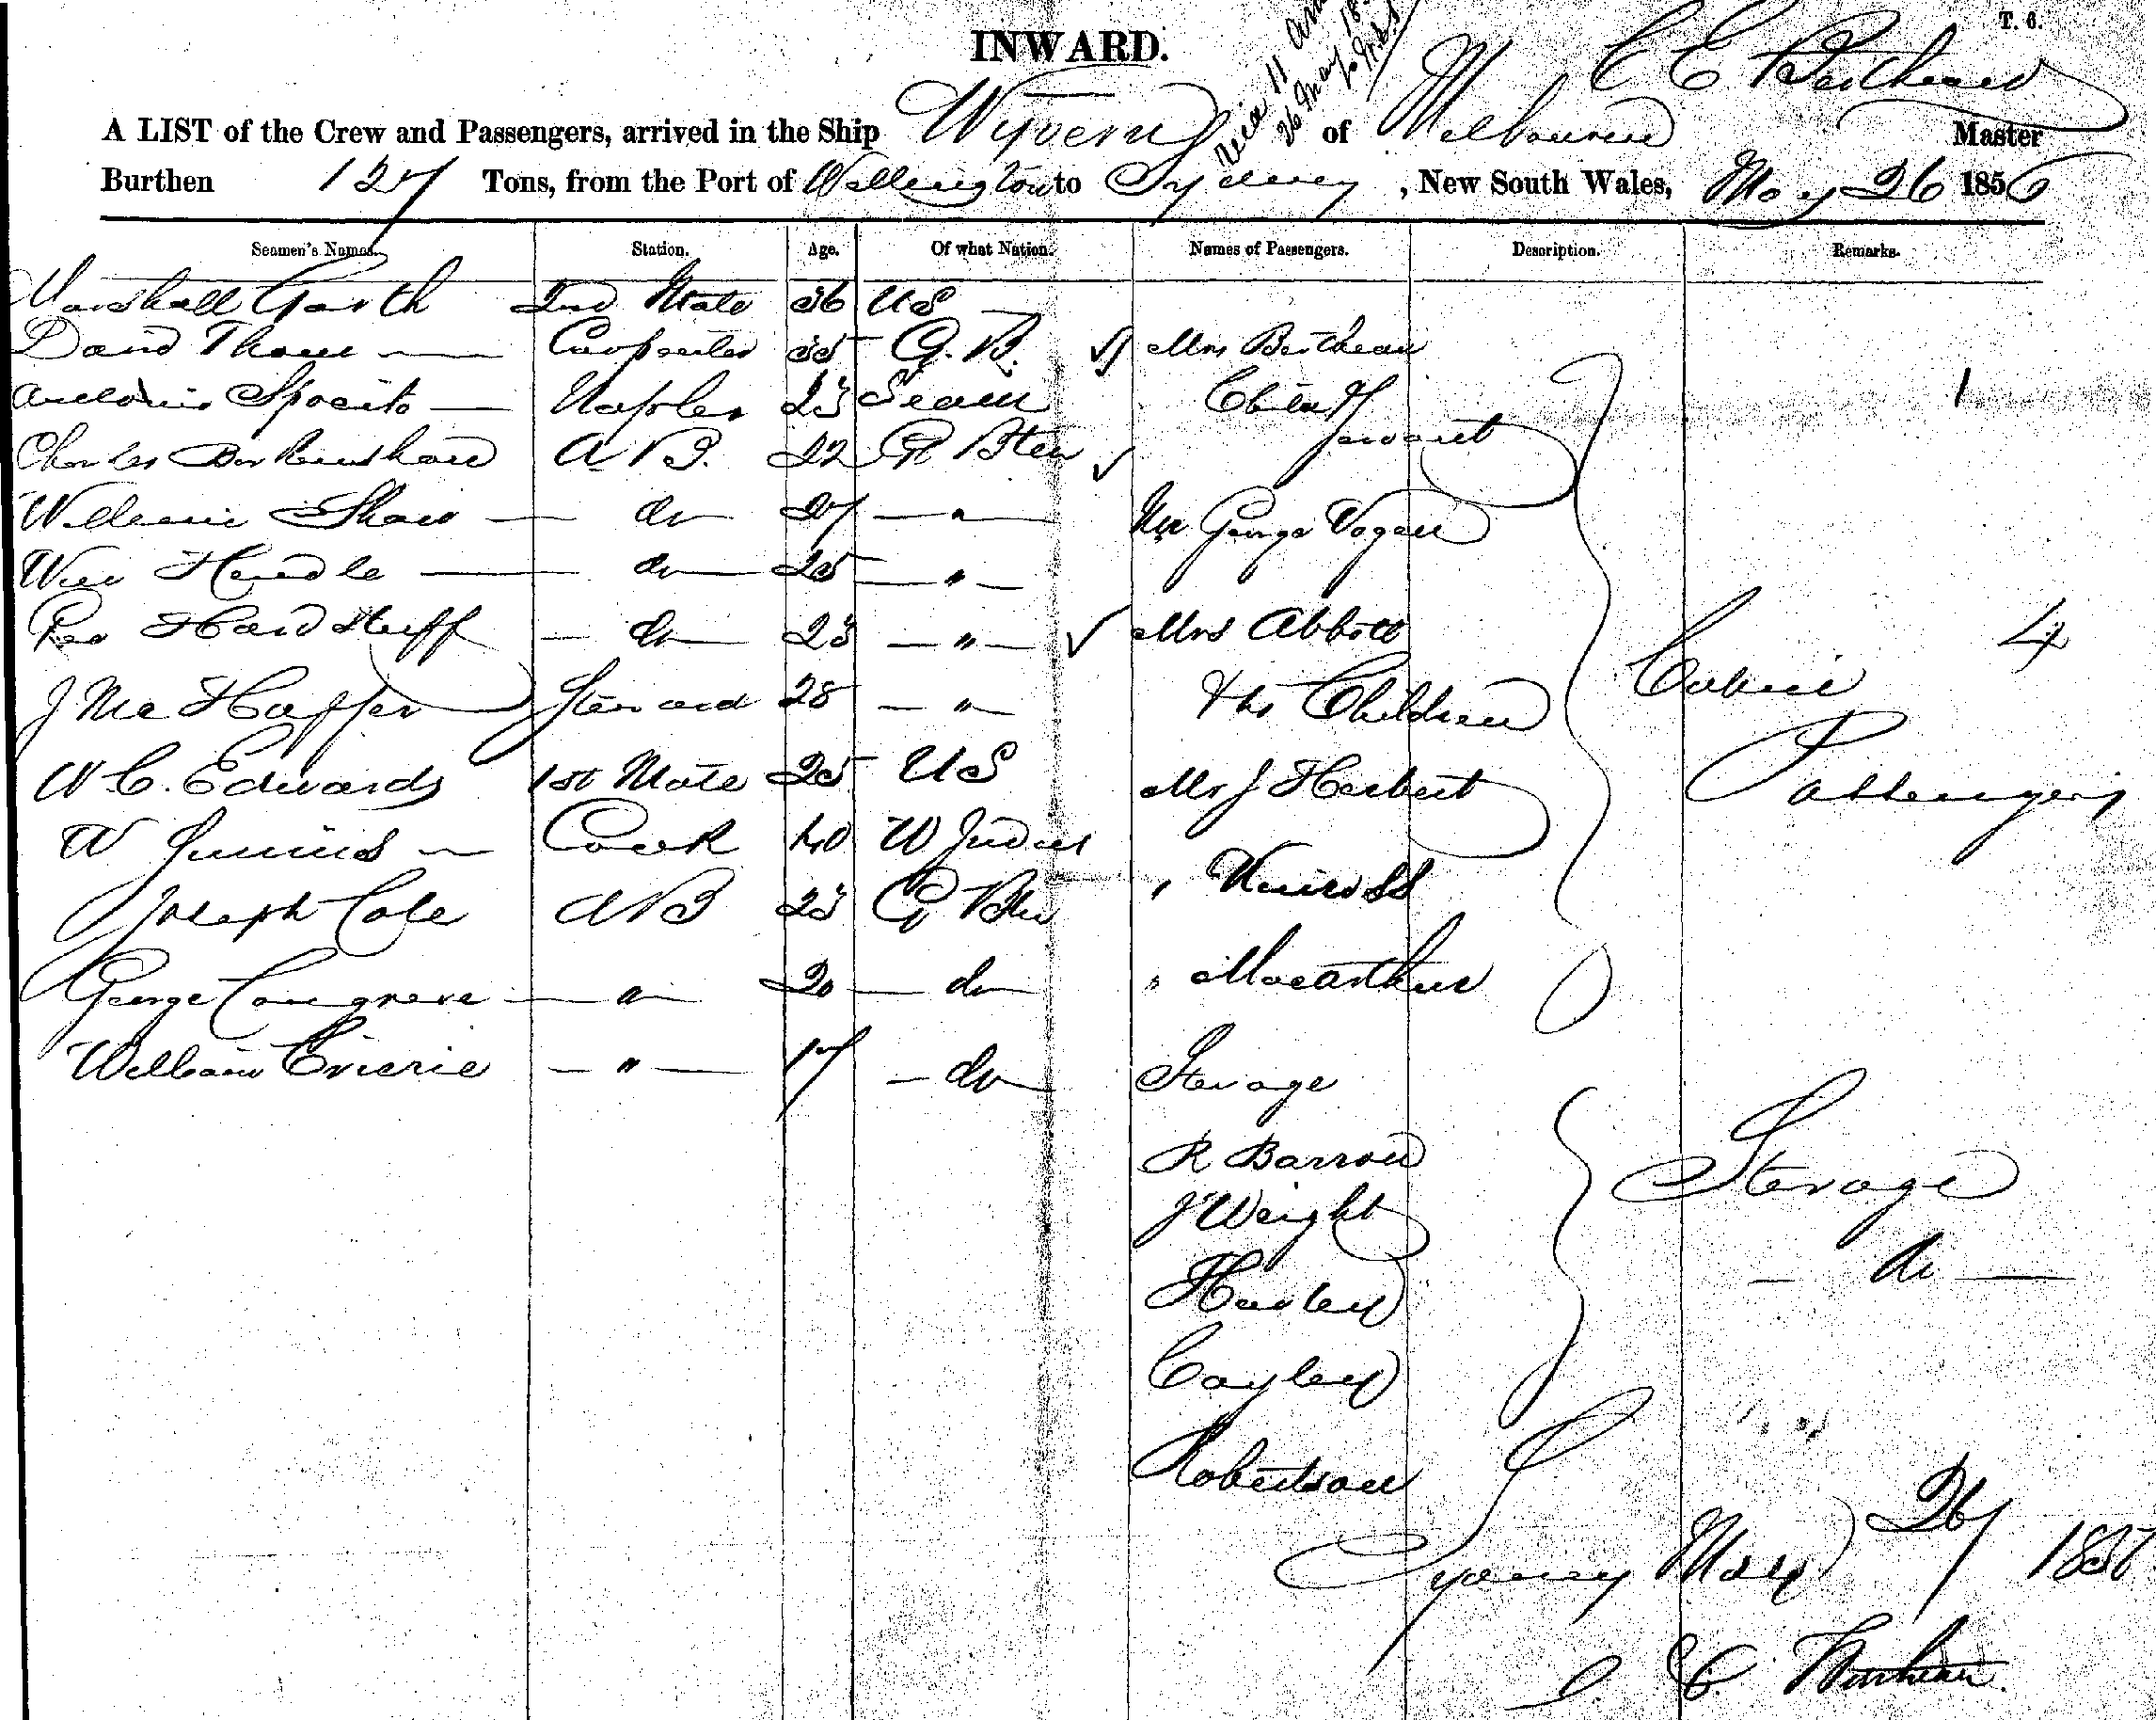 T. 6.
INWARD.
26 May
A LIST of the Crew and Passengers, arrived in the Ship Wyvern of Melbourne C E Bertheau Master
Burthen 127 Tons, from the Port of Wellington to Sydney, New South Wales, May 26 1856
Seamen's Names. Station. Age. Of what Nation. Names of Passengers. Description. Remarks.
Marshall Garth 2nd Mate 36 US
David Thom Carpenter 35 G. B. Mrs Bertheau
Sposito Naples 23 Seam Child & 1
Charles Berkenshaw A B. 22 G Bten servant
William Shaw do 27 " Mr George Vogan
Wm Hendle do 25 "
Geo Hardstuff do 23 " Mrs Abbott 4
J Mc Haffer Steward 28 " & hr Children Cabin
W C. Edwards 1st Mate 25 US Mr J Herbert Passengers
W Cook 40 W Indies
Joseph Cole A B 23 G Btn " Kinross
George Congreve " 20 do " Macarthur
William " 17 do Sterage
R Barrow Sterage
J Weight
Harley do
Cayley
Robertson
Sydney May 26/ 185
C. E. Bertheau